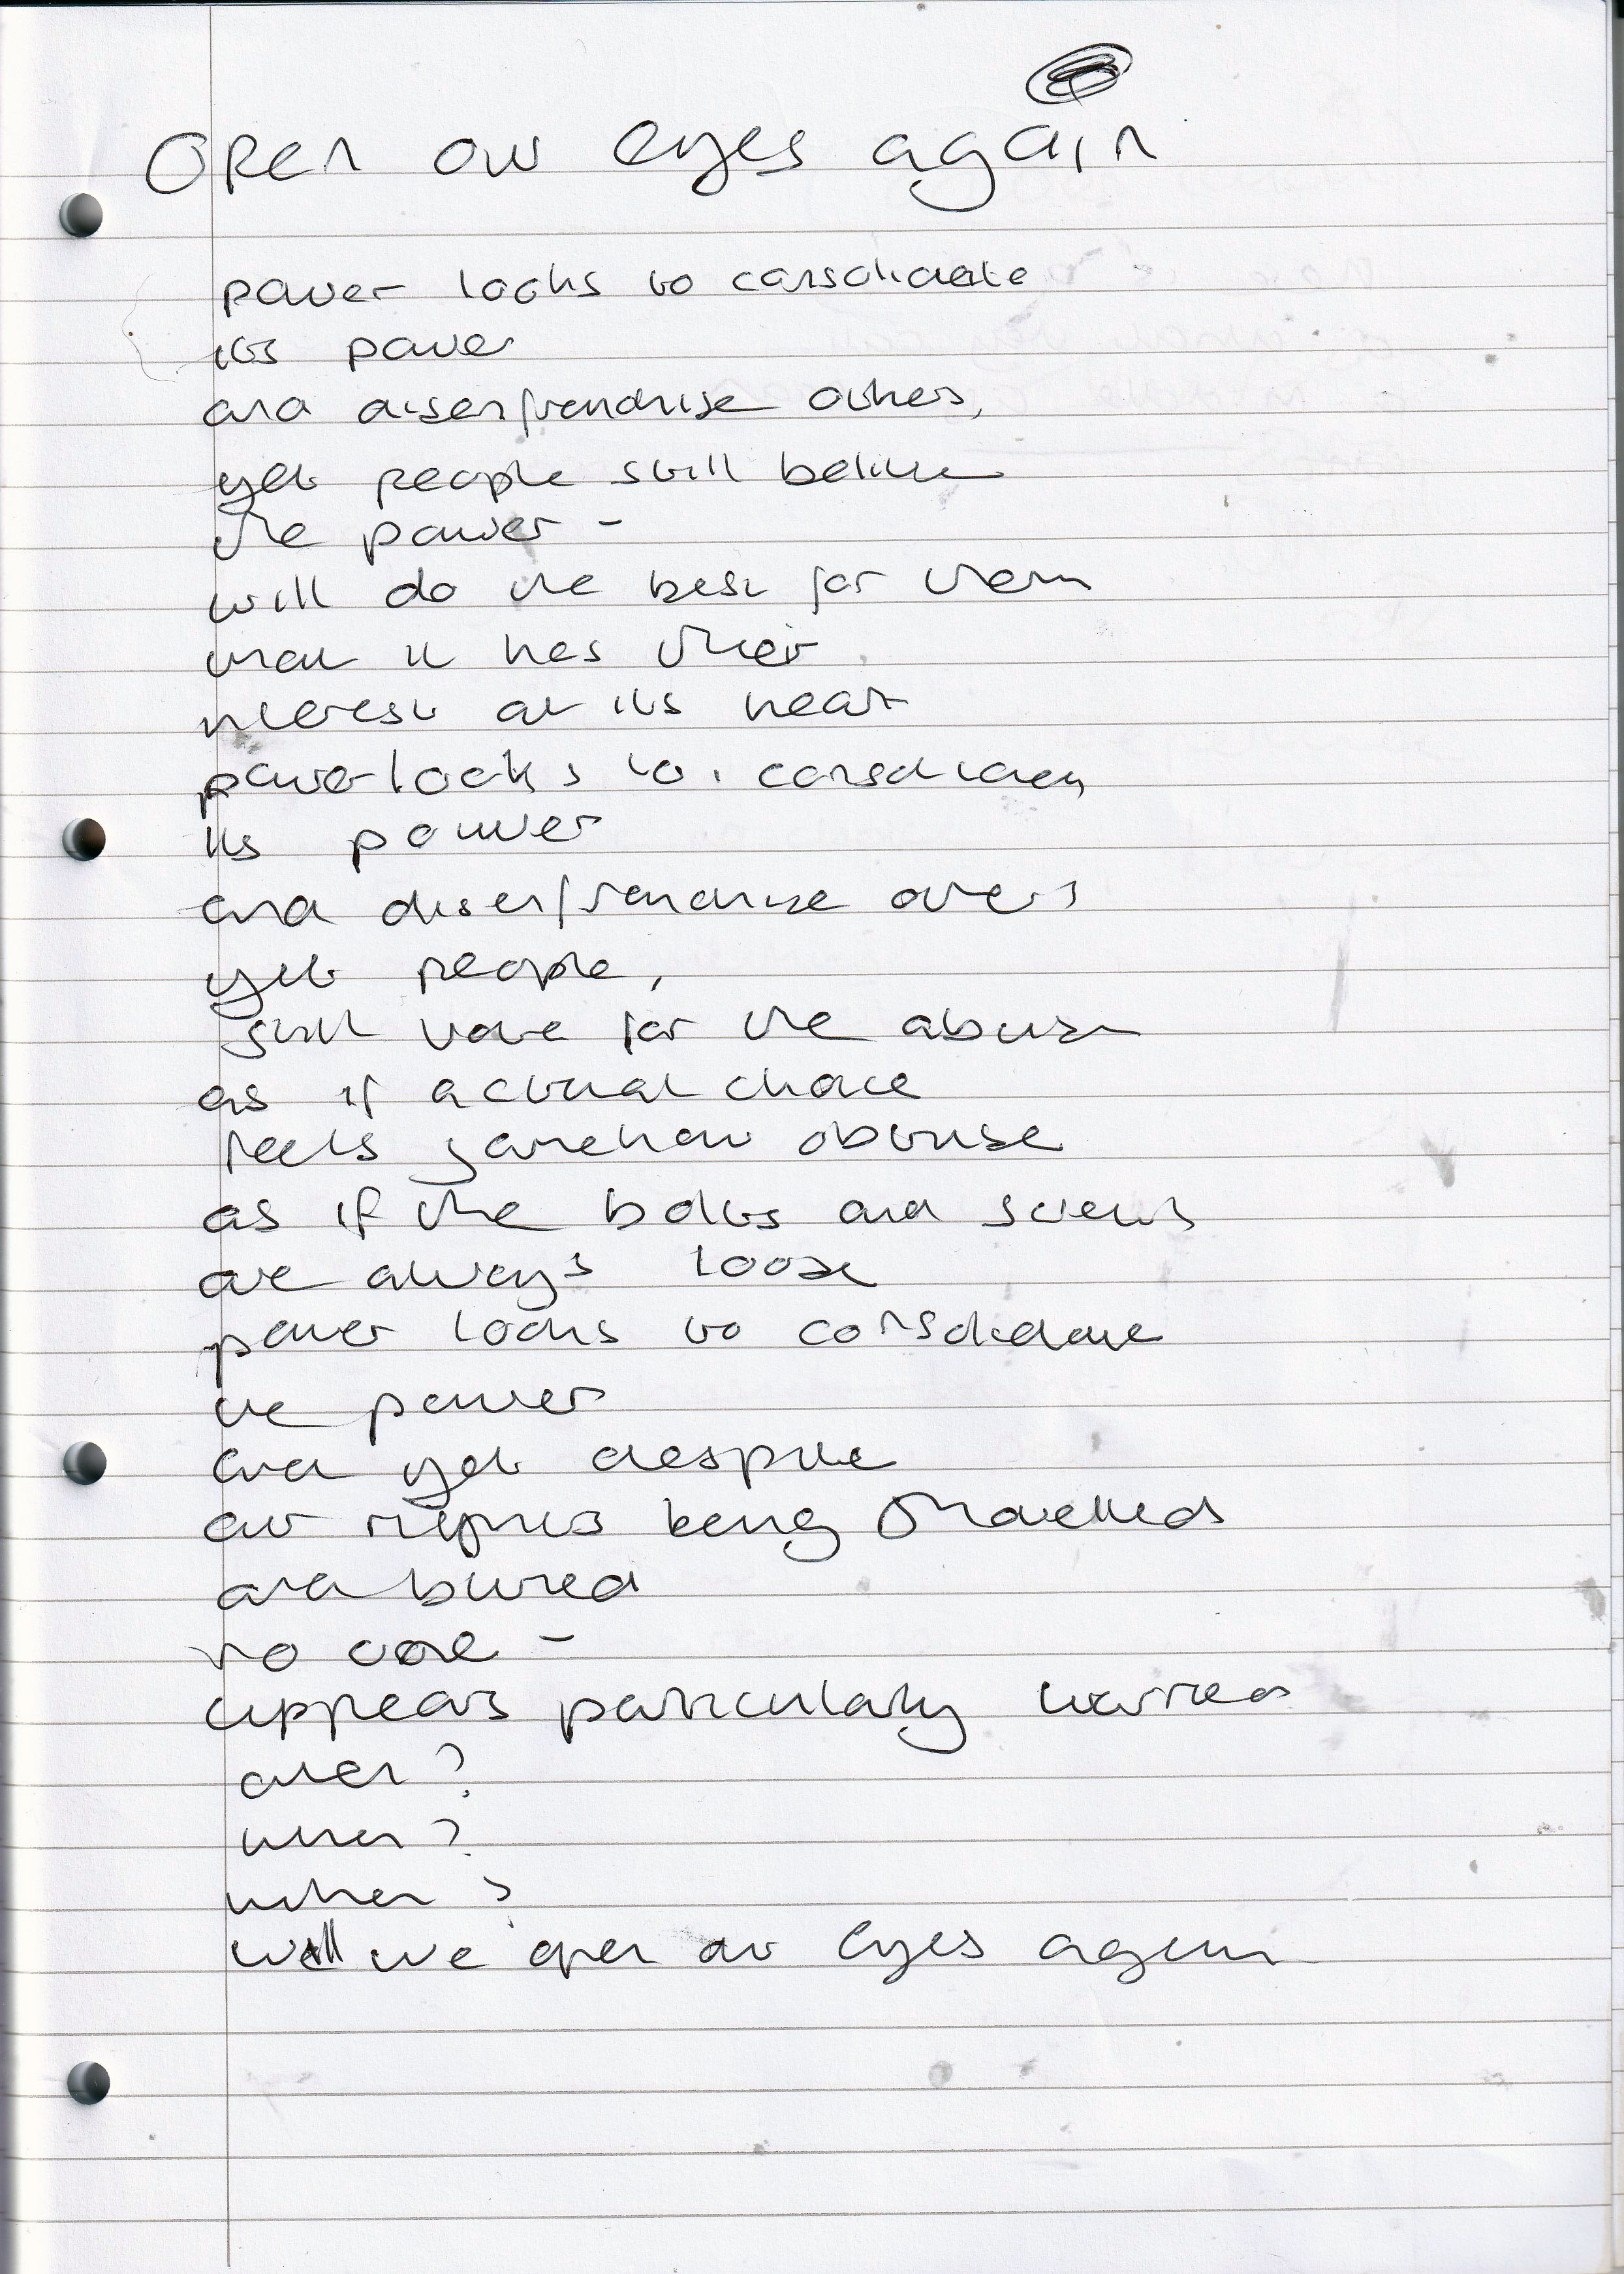 Open our eyes again
power looks to consolidate
its power
and disenfranchise others,
yet people still believe
the power -
will do the best for them
that it has their
interest at its heart
power looks to consolidate
its power
and disenfranchise others
yet people,
still vote for the abuse
as if actual choice
feels somehow obtuse
as if the bolts and screws
are always loose
power looks to consolidate
the power
and yet despite
our rights being shovelled
and buried
no one -
appears particularly worried
when?
when?
when?
will we open our eyes again